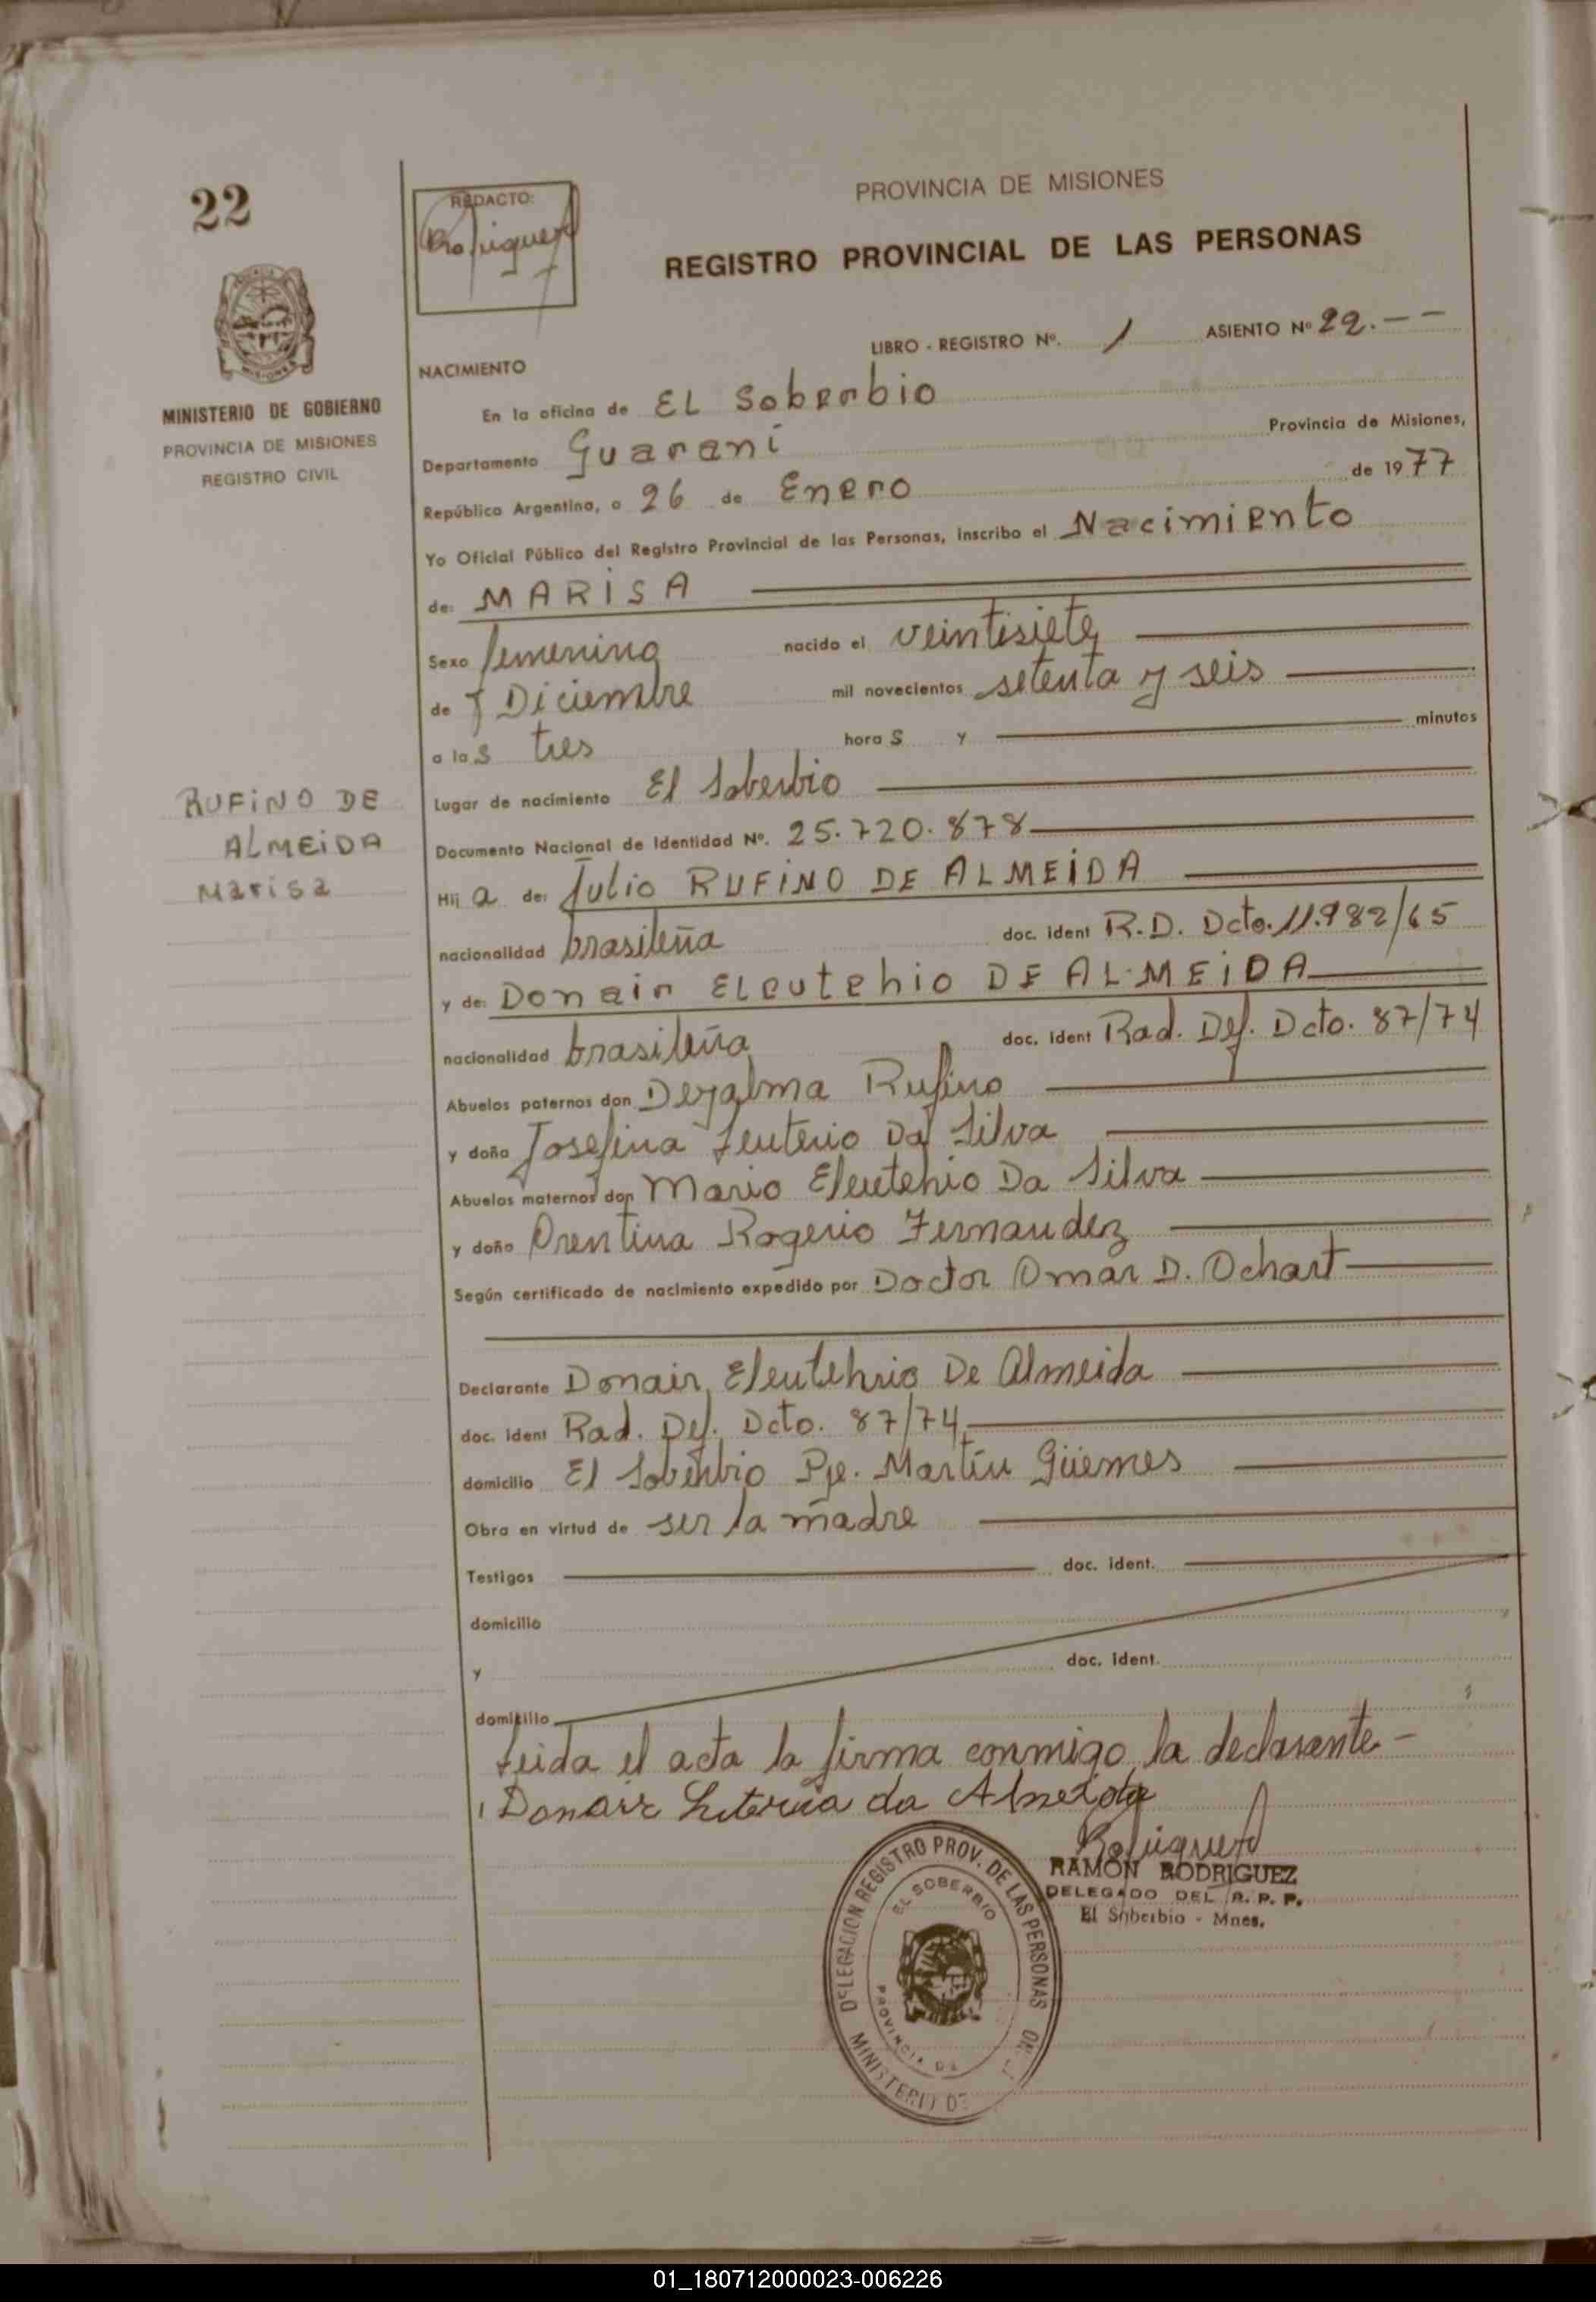 22
REDACTO:
PROVINCIA DE MISIONES
REGISTRO PROVINCIAL DE LAS PERSONAS
MINISTERIO DE GOBIERNO
PROVINCIA DE MISIONES
REGISTRO CIVIL
LIBRO - REGISTRO Nº. 1 ASIENTO Nº 22.--
NACIMIENTO
En la oficina de EL Soberbio
Departamento Guaraní Provincia de Misiones,
República Argentina, a 26 de Enero de 1977
Yo Oficial Público del Registro Provincial de las Personas, inscribo el Nacimiento
de: MARISA
Sexo femenino nacido el veintisiete
de Diciembre mil novecientos setenta y seis
a las tres horas y minutos
Lugar de nacimiento El Soberbio
RUFINO DE
ALMEIDA
Marisa
Documento Nacional de Identidad Nº. 25.720.878
Hija de: Julio RUFINO DE ALMEIDA
nacionalidad brasileña doc. ident R.D. Dcto. 11.982/65
y de: Donair ELeutehio DE ALMEIDA
nacionalidad brasileña doc. ident Rad. Def. Dcto. 87/74
Abuelos paternos don Deyalma Rufino
y doña Josefina Leuterio Da Silva
Abuelos maternos don Mario Eleutehio Da Silva
y doña Orentina Rogerio Fernandez
Según certificado de nacimiento expedido por Doctor Omar D. Ochart
Declarante Donair Eleutehrio De Almeida
doc. ident Rad. Def. Dcto. 87/74
domicilio El Soberbio Pje. Martín Güemes
Obra en virtud de ser la madre
Testigos doc. ident.
domicilio
y doc. ident.
domicilio
Leida el acta la firma conmigo la declarante -
Donair da Almeida
RAMON RODRIGUEZ
DELEGADO DEL R. P. P.
El Soberbio - Mnes.
DELEGACION REGISTRO PROV. DE LAS PERSONAS
EL SOBERBIO
PROVINCIA DE
MINISTERIO DE
01_180712000023-006226